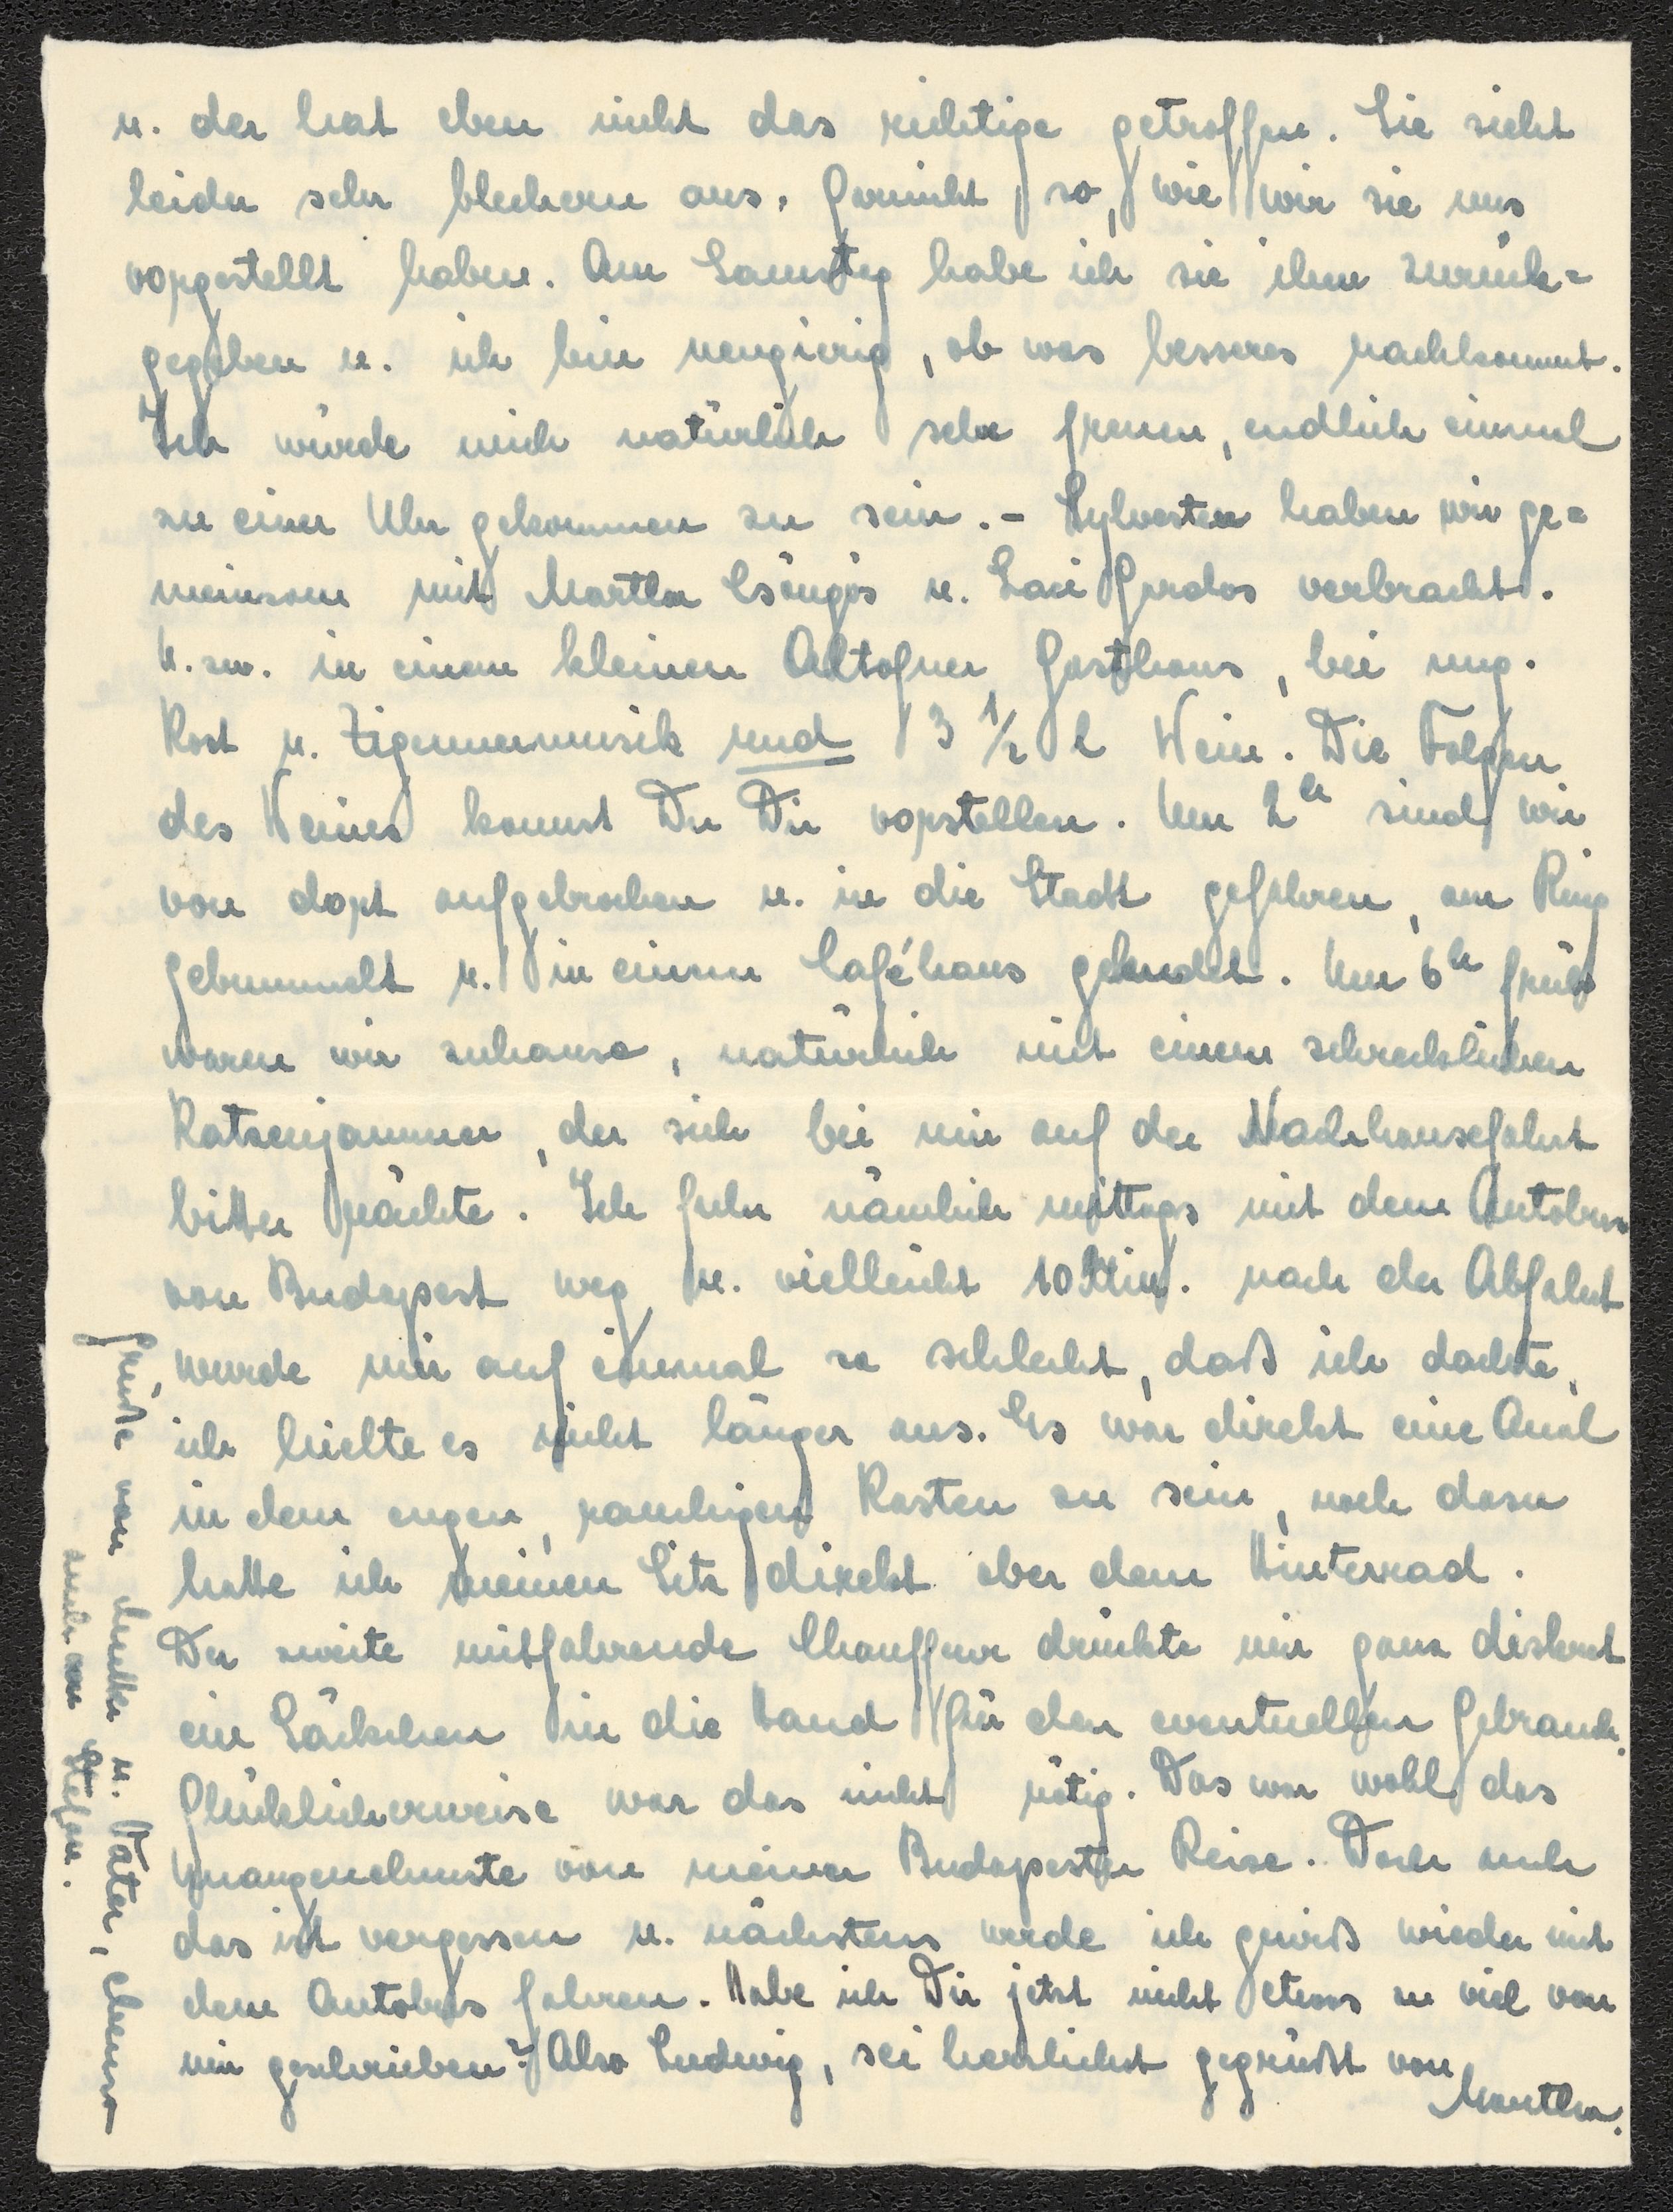 u. der hat eben nicht das richtige getroffen. Sie sieht
leider sehr blechern aus, garnicht so, wie wir sie uns
vorgestellt haben. Am Samstag habe ich sie ihm zurück=
gegeben u. ich bin neugierig, ob was besseres nachkommt.
Ich würde mich natürlich sehr freuen, endlich einmal
zu einer Uhr gekommen zu sein. - Sylvester haben wir ge=
meinsam mit Martha Csöngös u. Laci Gerdos verbracht.
U.zw. in einem kleinen Altofner Gasthaus, bei ung.
Kost u. Zigeunermusik und 3 1/2 l Wein. Die Folgen
des Weines kannst Du Dir vorstellen. Um 2h sind wir
von dort aufgebrochen u. in die Stadt gefahren, am Ring
gebummelt u. in einem Caféhaus gelandet. Um 6h früh
waren wir zuhause, natürlich mit einem schrecklichen
Katzenjammer, der sich bei mir auf der Nachhausefahrt
bitter rächte. Ich fuhr nämlich mittags mit dem Autobus
von Budapest weg u. vielleicht 10 Min. nach der Abfahrt
wurde mir auf einmal so schlecht, daß ich dachte,
ich hielte es nicht länger aus. Es war direkt eine Qual
in dem engen, rauchigen Kasten zu sein, noch dazu
hatte ich meinen Sitz direkt ober dem Hinterrad.
Der zweite mitfahrende Chauffeur drückte mir ganz diskret
ein Säckchen in die Hand für den eventuellen Gebrauch.
Glücklicherweise war das nicht nötig. Das war wohl das
Unangenehmste von meiner Budapester Reise. Doch auch
das ist vergessen u. nächstens werde ich gewiß wieder mit
dem Autobus fahren. Habe ich Dir jetzt nicht etwas zu viel von
mir geschrieben? Also Ludwig, sei herzlichst gegrüßt von
Martha.
Grüße von Mutter u. Vater, ebenso
auch von Stefan.